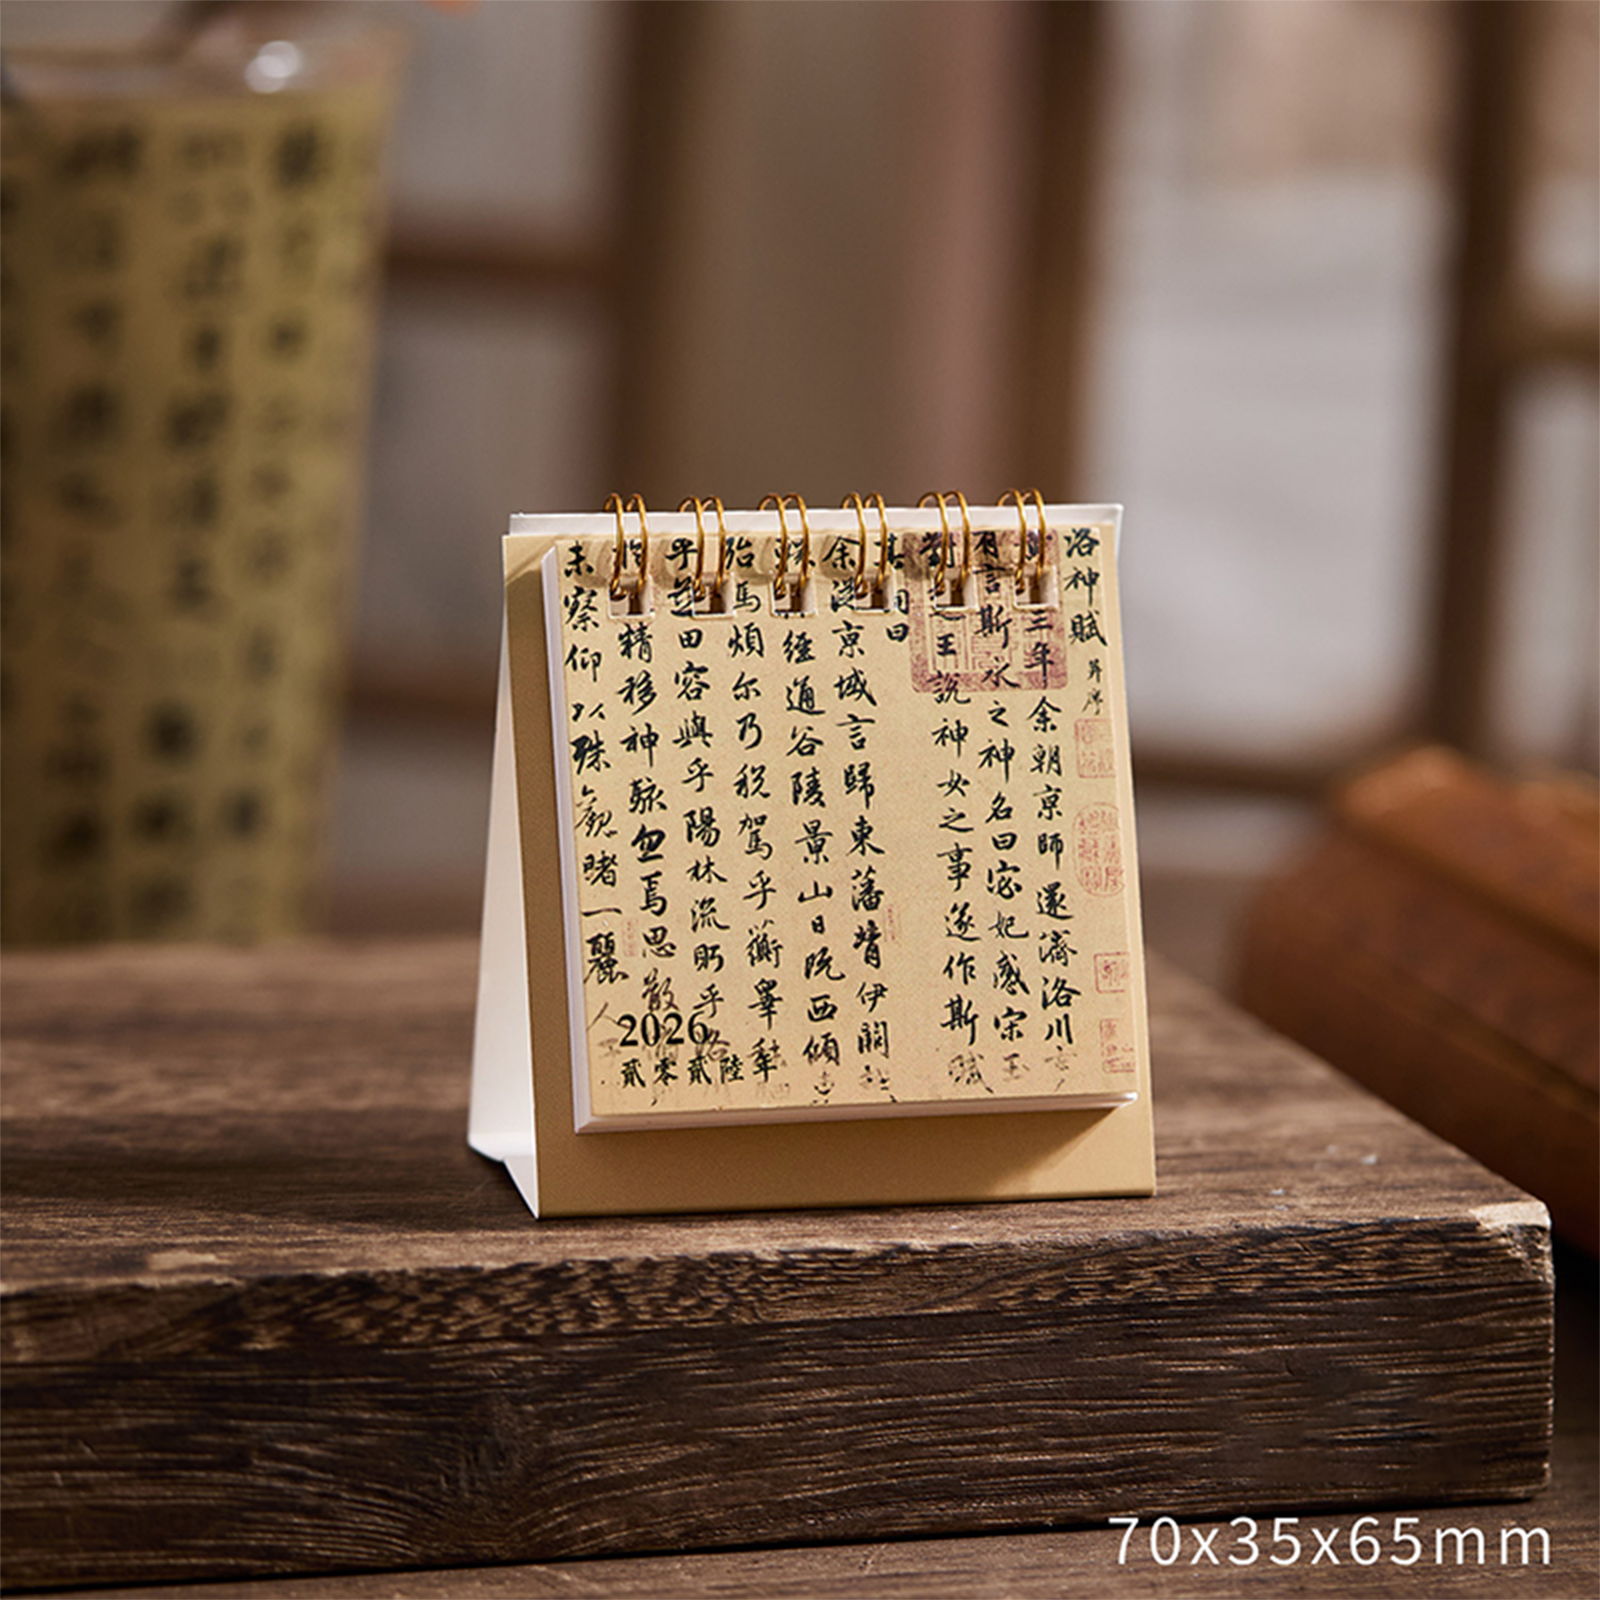 洛神賦 并序
三年余朝京師還濟洛川
有言斯水之神名曰宓妃感宋玉
對王說神女之事遂作斯賦
其詞曰
余從京域言歸東藩背伊闕
經通谷陵景山日既西傾
殆馬煩尔乃税駕乎蘅皋
乎芝田容與乎陽林流眄乎洛
精移神駭忽焉思散
未察仰以殊觀睹一麗人
2026
貳零貳陸年
70x35x65mm